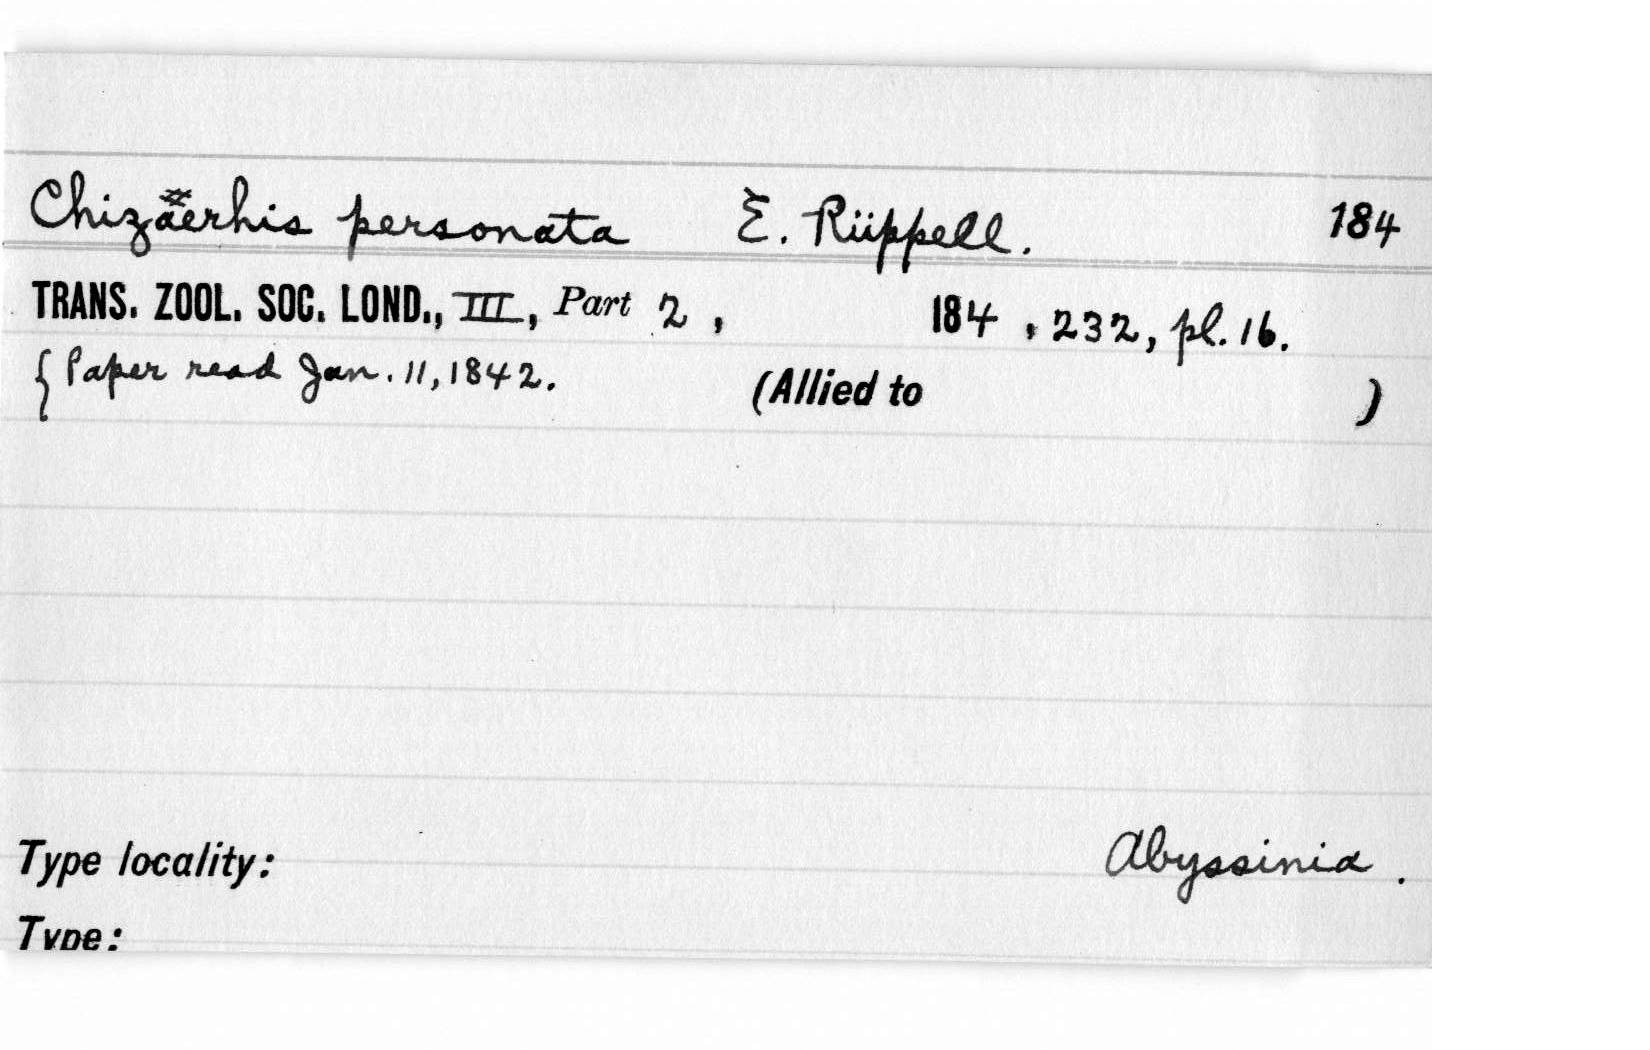 Chizaerhis personata E. Rüppell. 184
TRANS. ZOOL. SOC. LOND., III, Part 2, 184 , 232, pl. 16.
{ Paper read Jan. 11, 1842. (Allied to )
Type locality: Abyssinia.
Type: